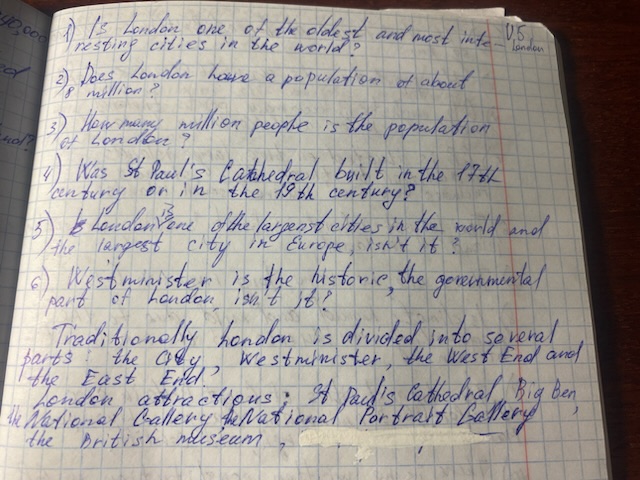 1) Is London one of the oldest and most inte-
resting cities in the world?
V.5
London
2) Does London have a population of about
8 million?
3) How many million people is the population
of London?
4) Was St Paul's Cathedral built in the 17th
century or in the 19th century?
5) London is one of the largenst cities in the world and
the largest city in Europe, isn't it?
6) Westminister is the historic, the governmental
part of London, isn't it?
Traditionally London is divided into several
parts: the City, Westminister, the West End and
the East End.
London attractions: St Paul's Cathedral, Big Ben,
the National Gallery, the National Portrait Gallery
the British museum,
40,000